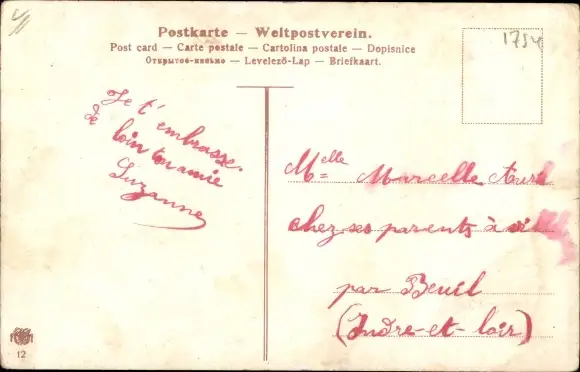 Postkarte — Weltpostverein.
Post card — Carte postale — Cartolina postale — Dopisnice
Открытое-письмо — Levelező-Lap — Briefkaart.
1754
Je t'embrasse
de loin ton amie
Suzanne
Melle Marcelle
chez ses parents à
par Beuil
(Indre-et-loir)
12